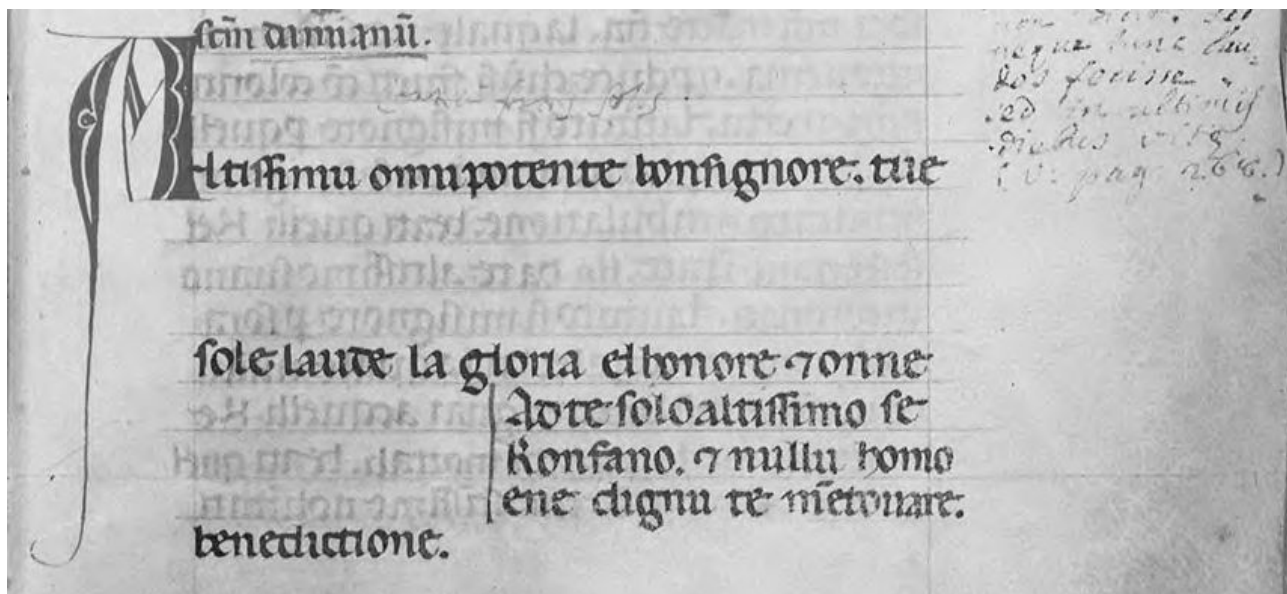 sc̄m damianū.
Altissimu omnipotente bonsignore. tue
sole laude la gloria elhonore ⁊ onne
Adte solo altissimo se
Konfano. ⁊ nullu homo
ene dignu te m̄etovare.
benedictione.
neque hunc lau
des fecisse
sed in ultimis
diebus vitę
(V. pag. 266.)